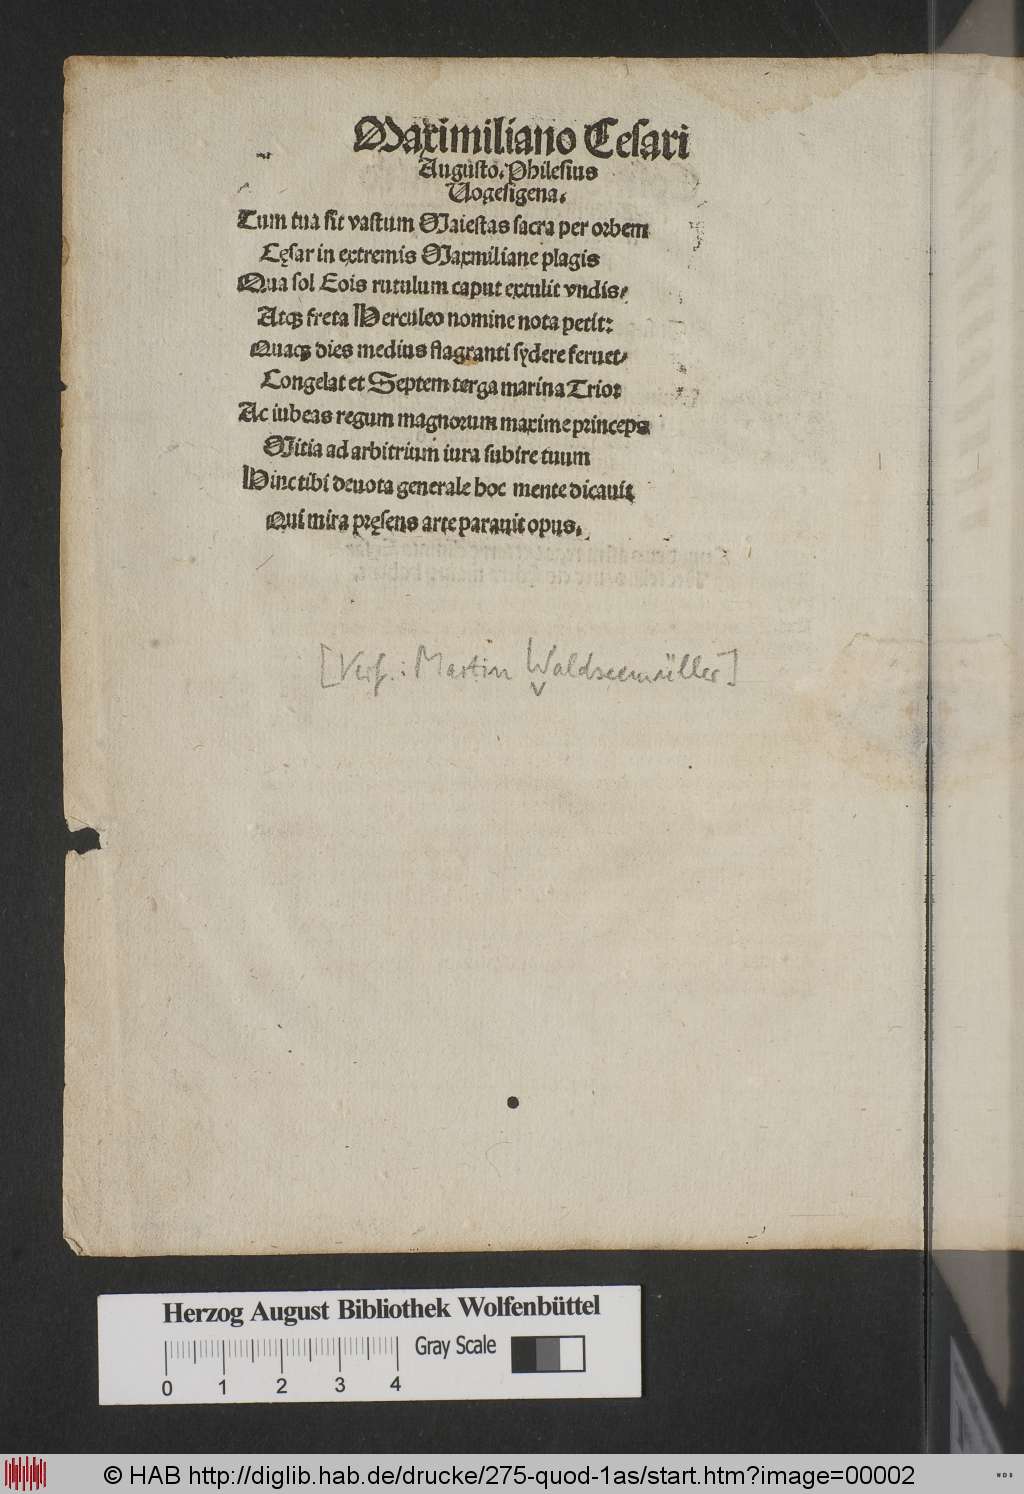 Maximiliano Cesari
Augusto. Philesius
Vogesigena.
Cum tua sit vastum Maiestas sacra per orbem
Cęsar in extremis Maxmiliane plagis
Qua sol Eois rutulum caput extulit vndis/
Atqȝ freta Herculeo nomine nota petit:
Quaqȝ dies medius flagranti sydere feruet/
Congelat et Septem terga marina Trio:
Ac iubeas regum magnorum maxime princeps
Mitia ad arbitrium iura subire tuum
Hinc tibi deuota generale hoc mente dicauit
Qui mira pręsens arte parauit opus.
[Verf.: Martin Waldseemüller]
Herzog August Bibliothek Wolfenbüttel
Gray Scale
0 1 2 3 4
© HAB http://diglib.hab.de/drucke/275-quod-1as/start.htm?image=00002